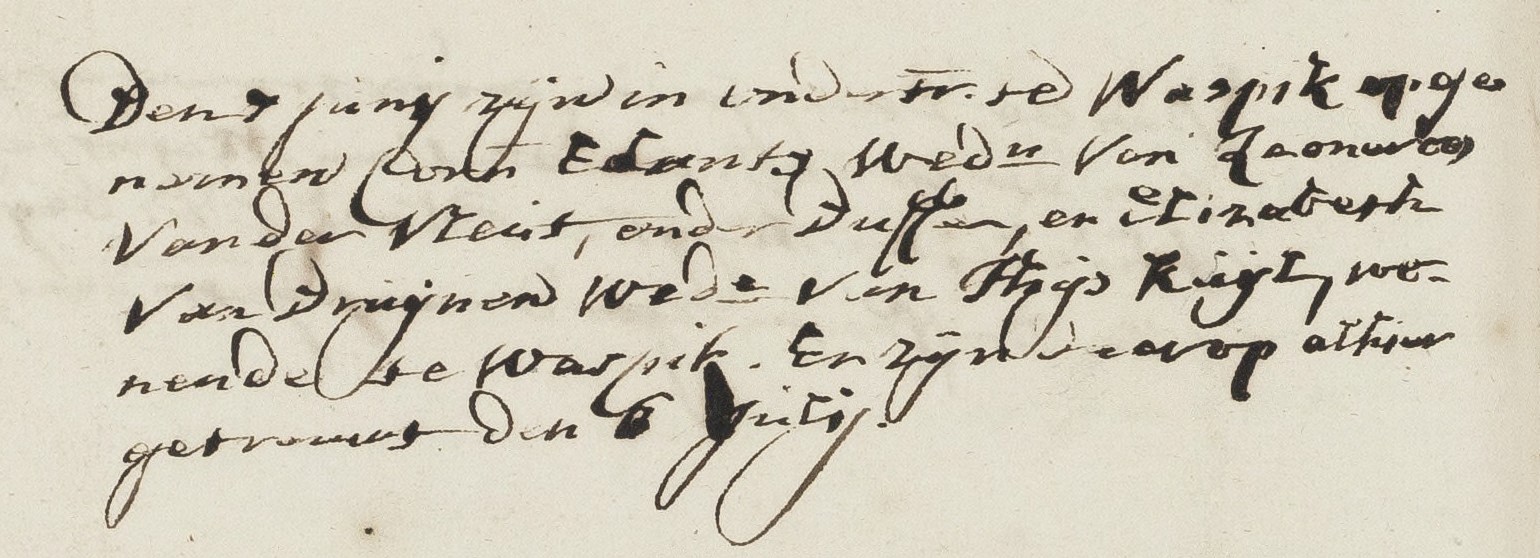 Den 7 junij zijn in ondertr. te Waspik opge
nomen Corn Edants Wedu van Leonwes
Van der Vleut, onder Dussen, en Elizabeth
Van Druijnen Wede van Thijs Kuijl, wo-
nende te Waspik. En zijn daerop alhier
getrouwt den 6 Julij.